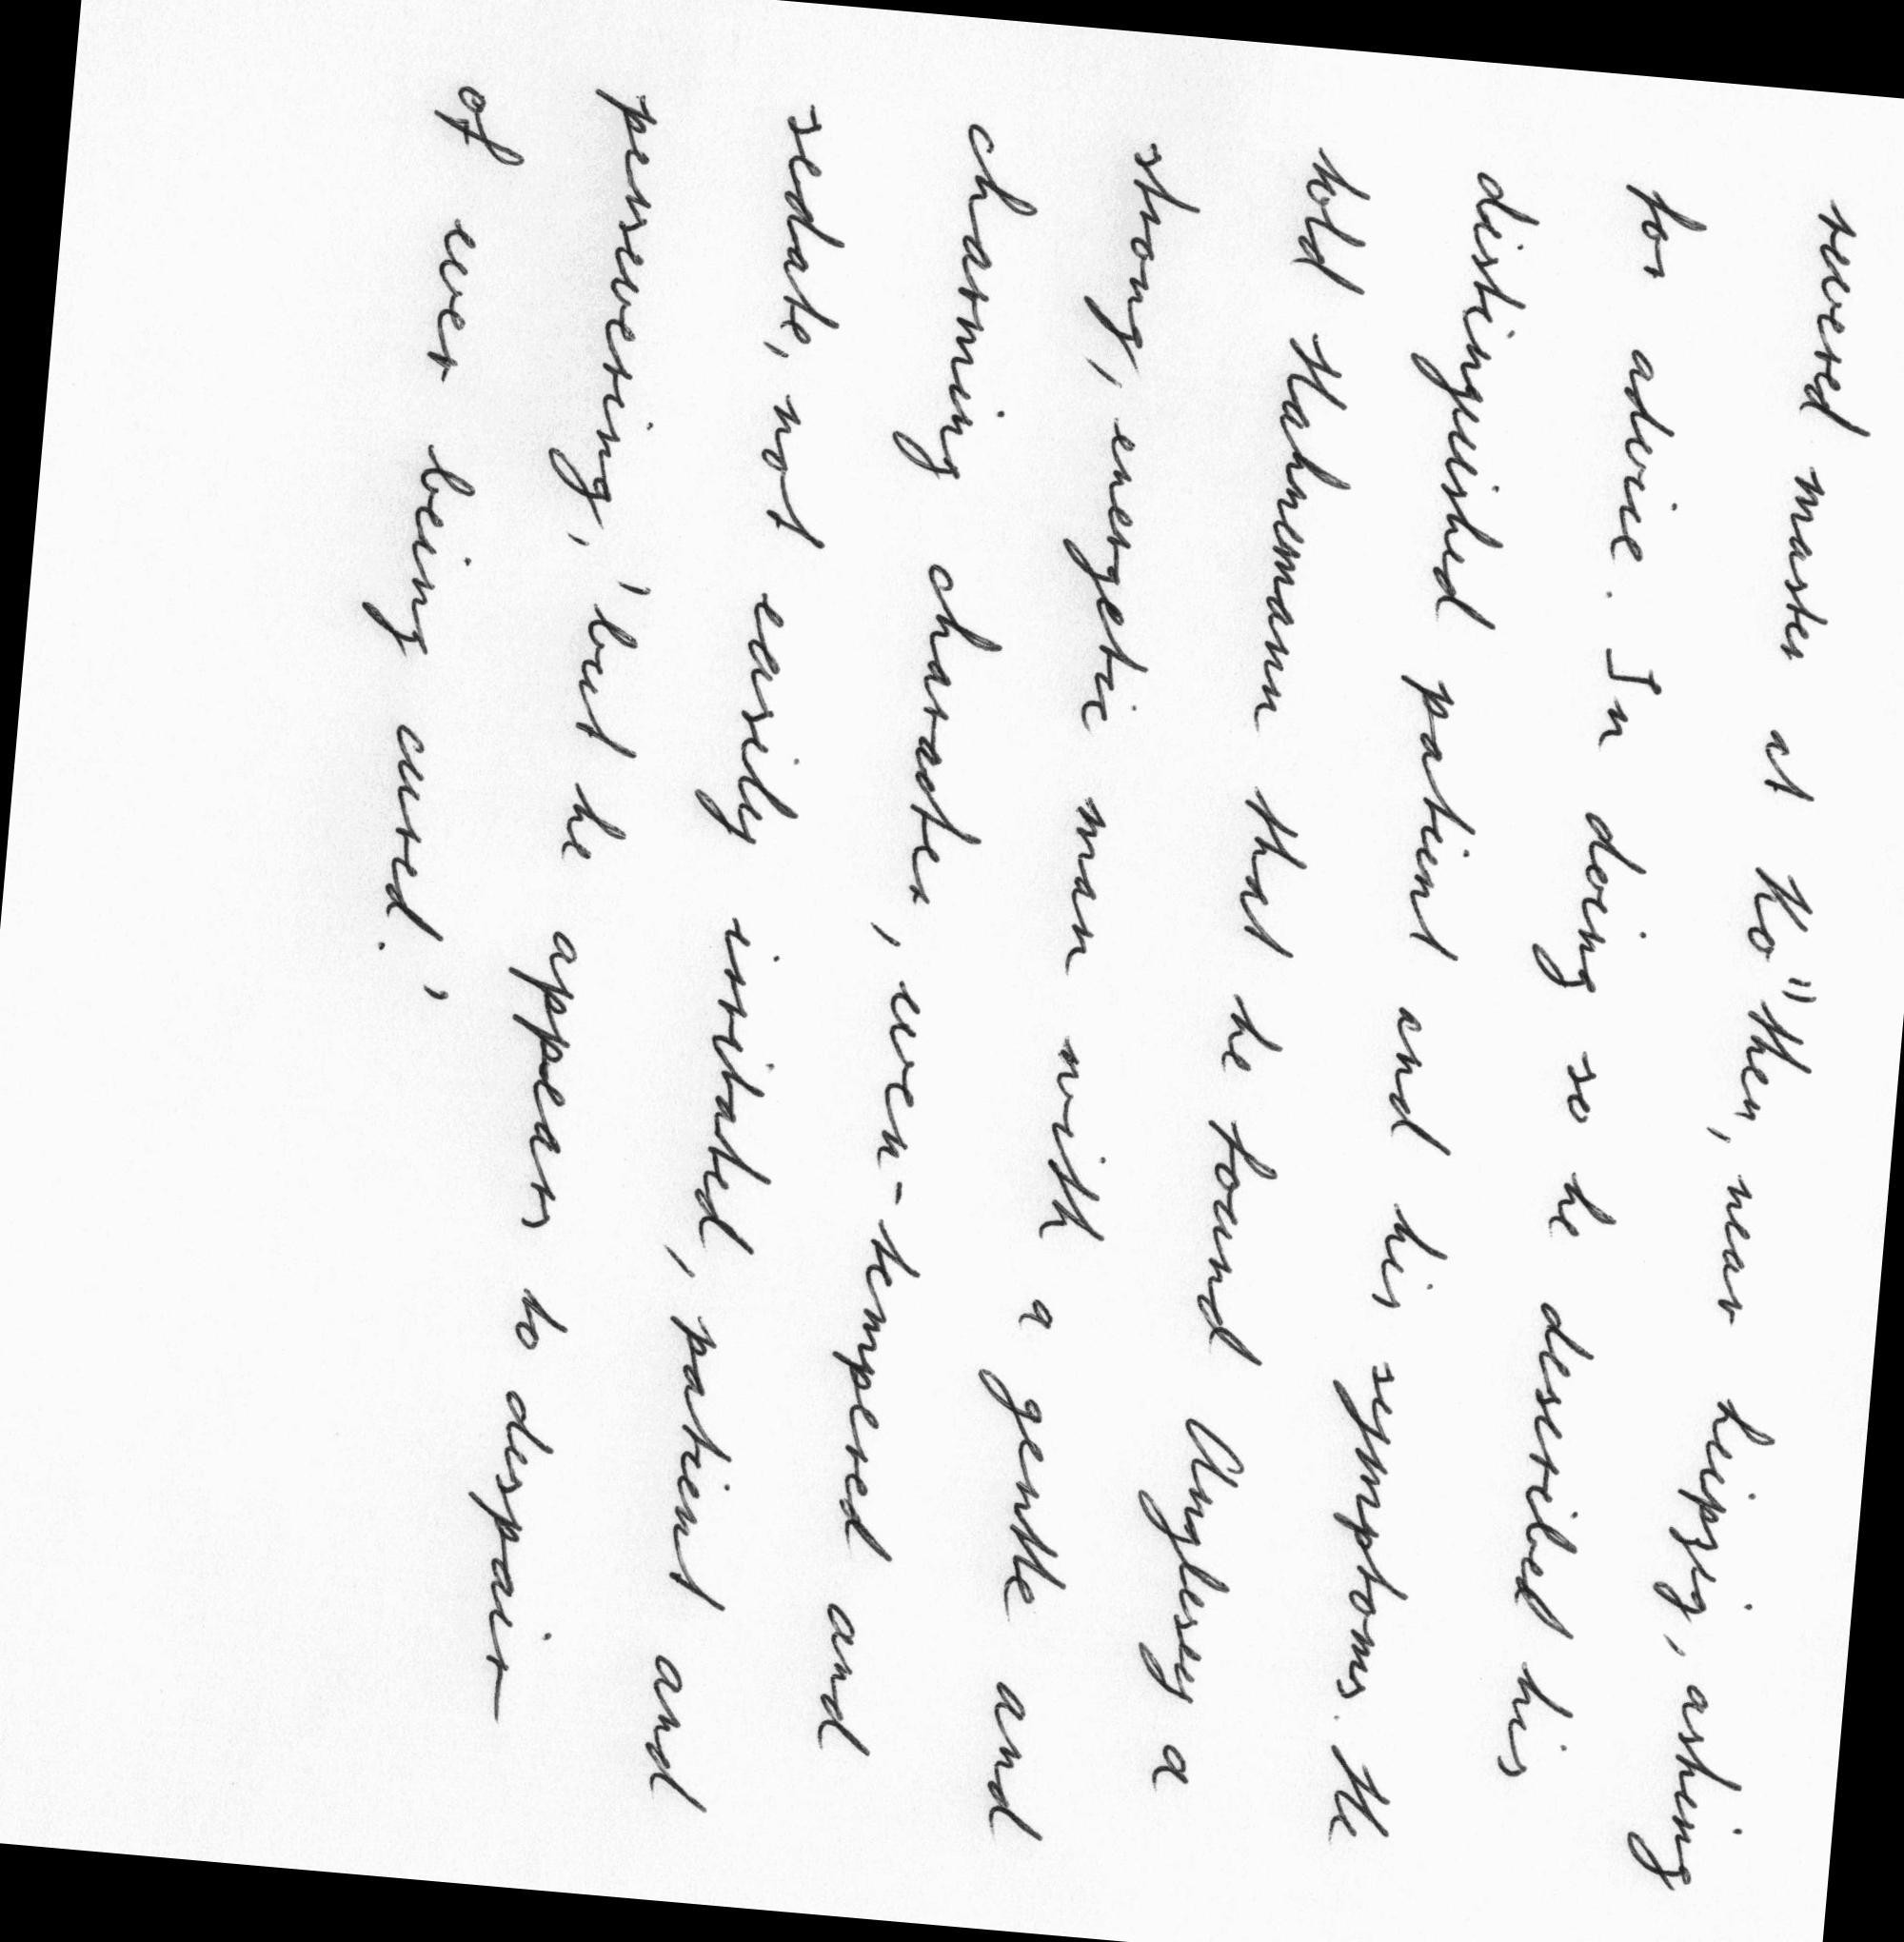 revered master at Ko"then, near Leipzig, asking
for advice. In doing so he described his
distinguished patient and his symptoms. He
told Hahnemann that he found Anglesey a
strong, energetic man with a gentle and
charming character, even-tempered and
sedate, not easily irritated, patient and
persevering,' but he appears to despair
of ever being cured.'